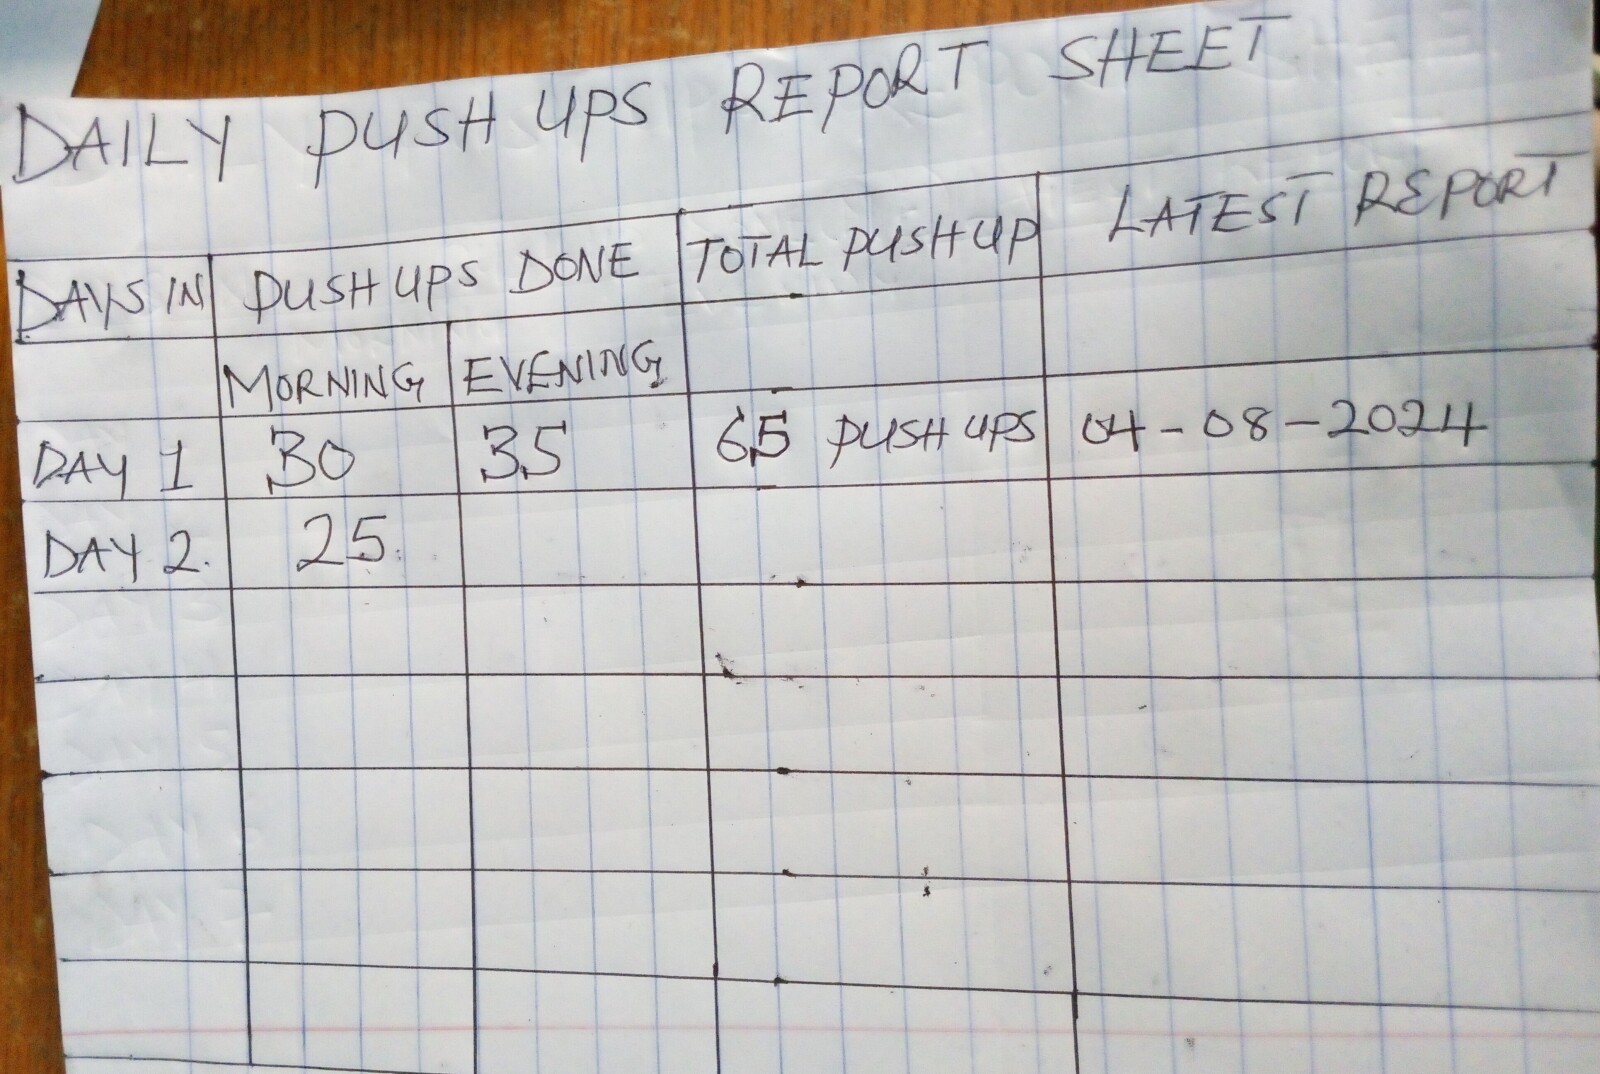 DAILY PUSH UPS REPORT SHEET
DAYS IN PUSH UPS DONE TOTAL PUSH UP LATEST REPORT
MORNING EVENING
DAY 1 30 35 65 PUSH UPS 04-08-2024
DAY 2. 25